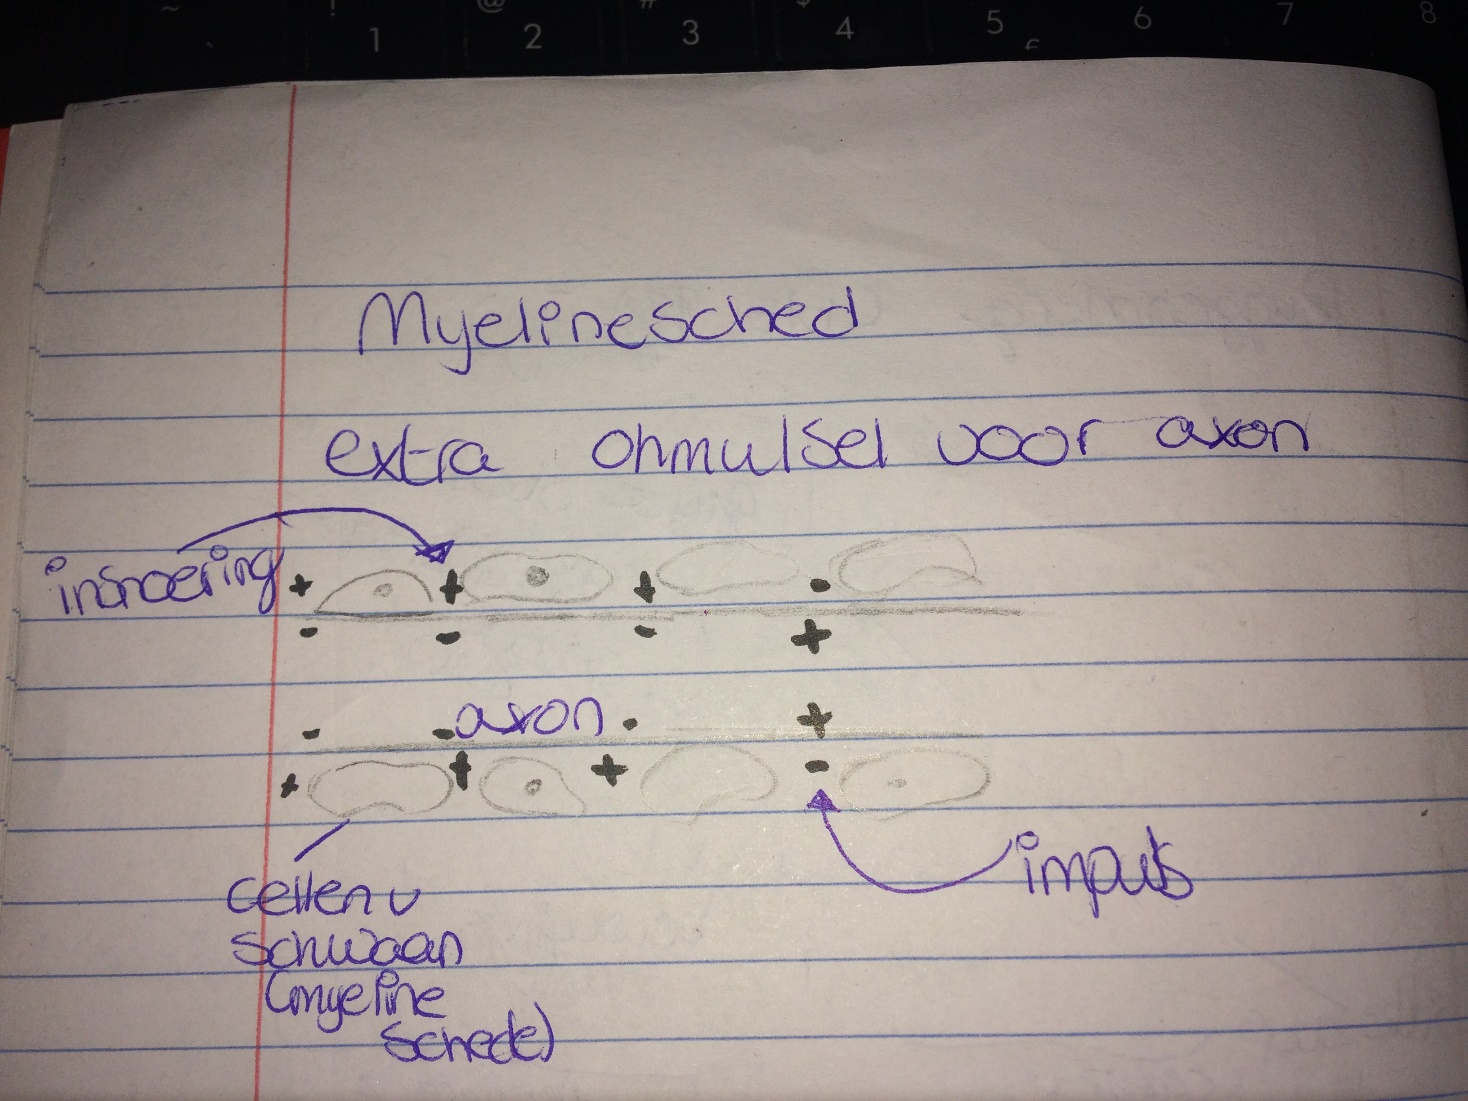 1 2 3 4 5 6 7 8
Myelinesched
extra omhulsel voor axon
insnoering
+ + + -
- - - +
- - axon - +
+ + + -
impuls
cellen v
schwaan
(myeline
schede)